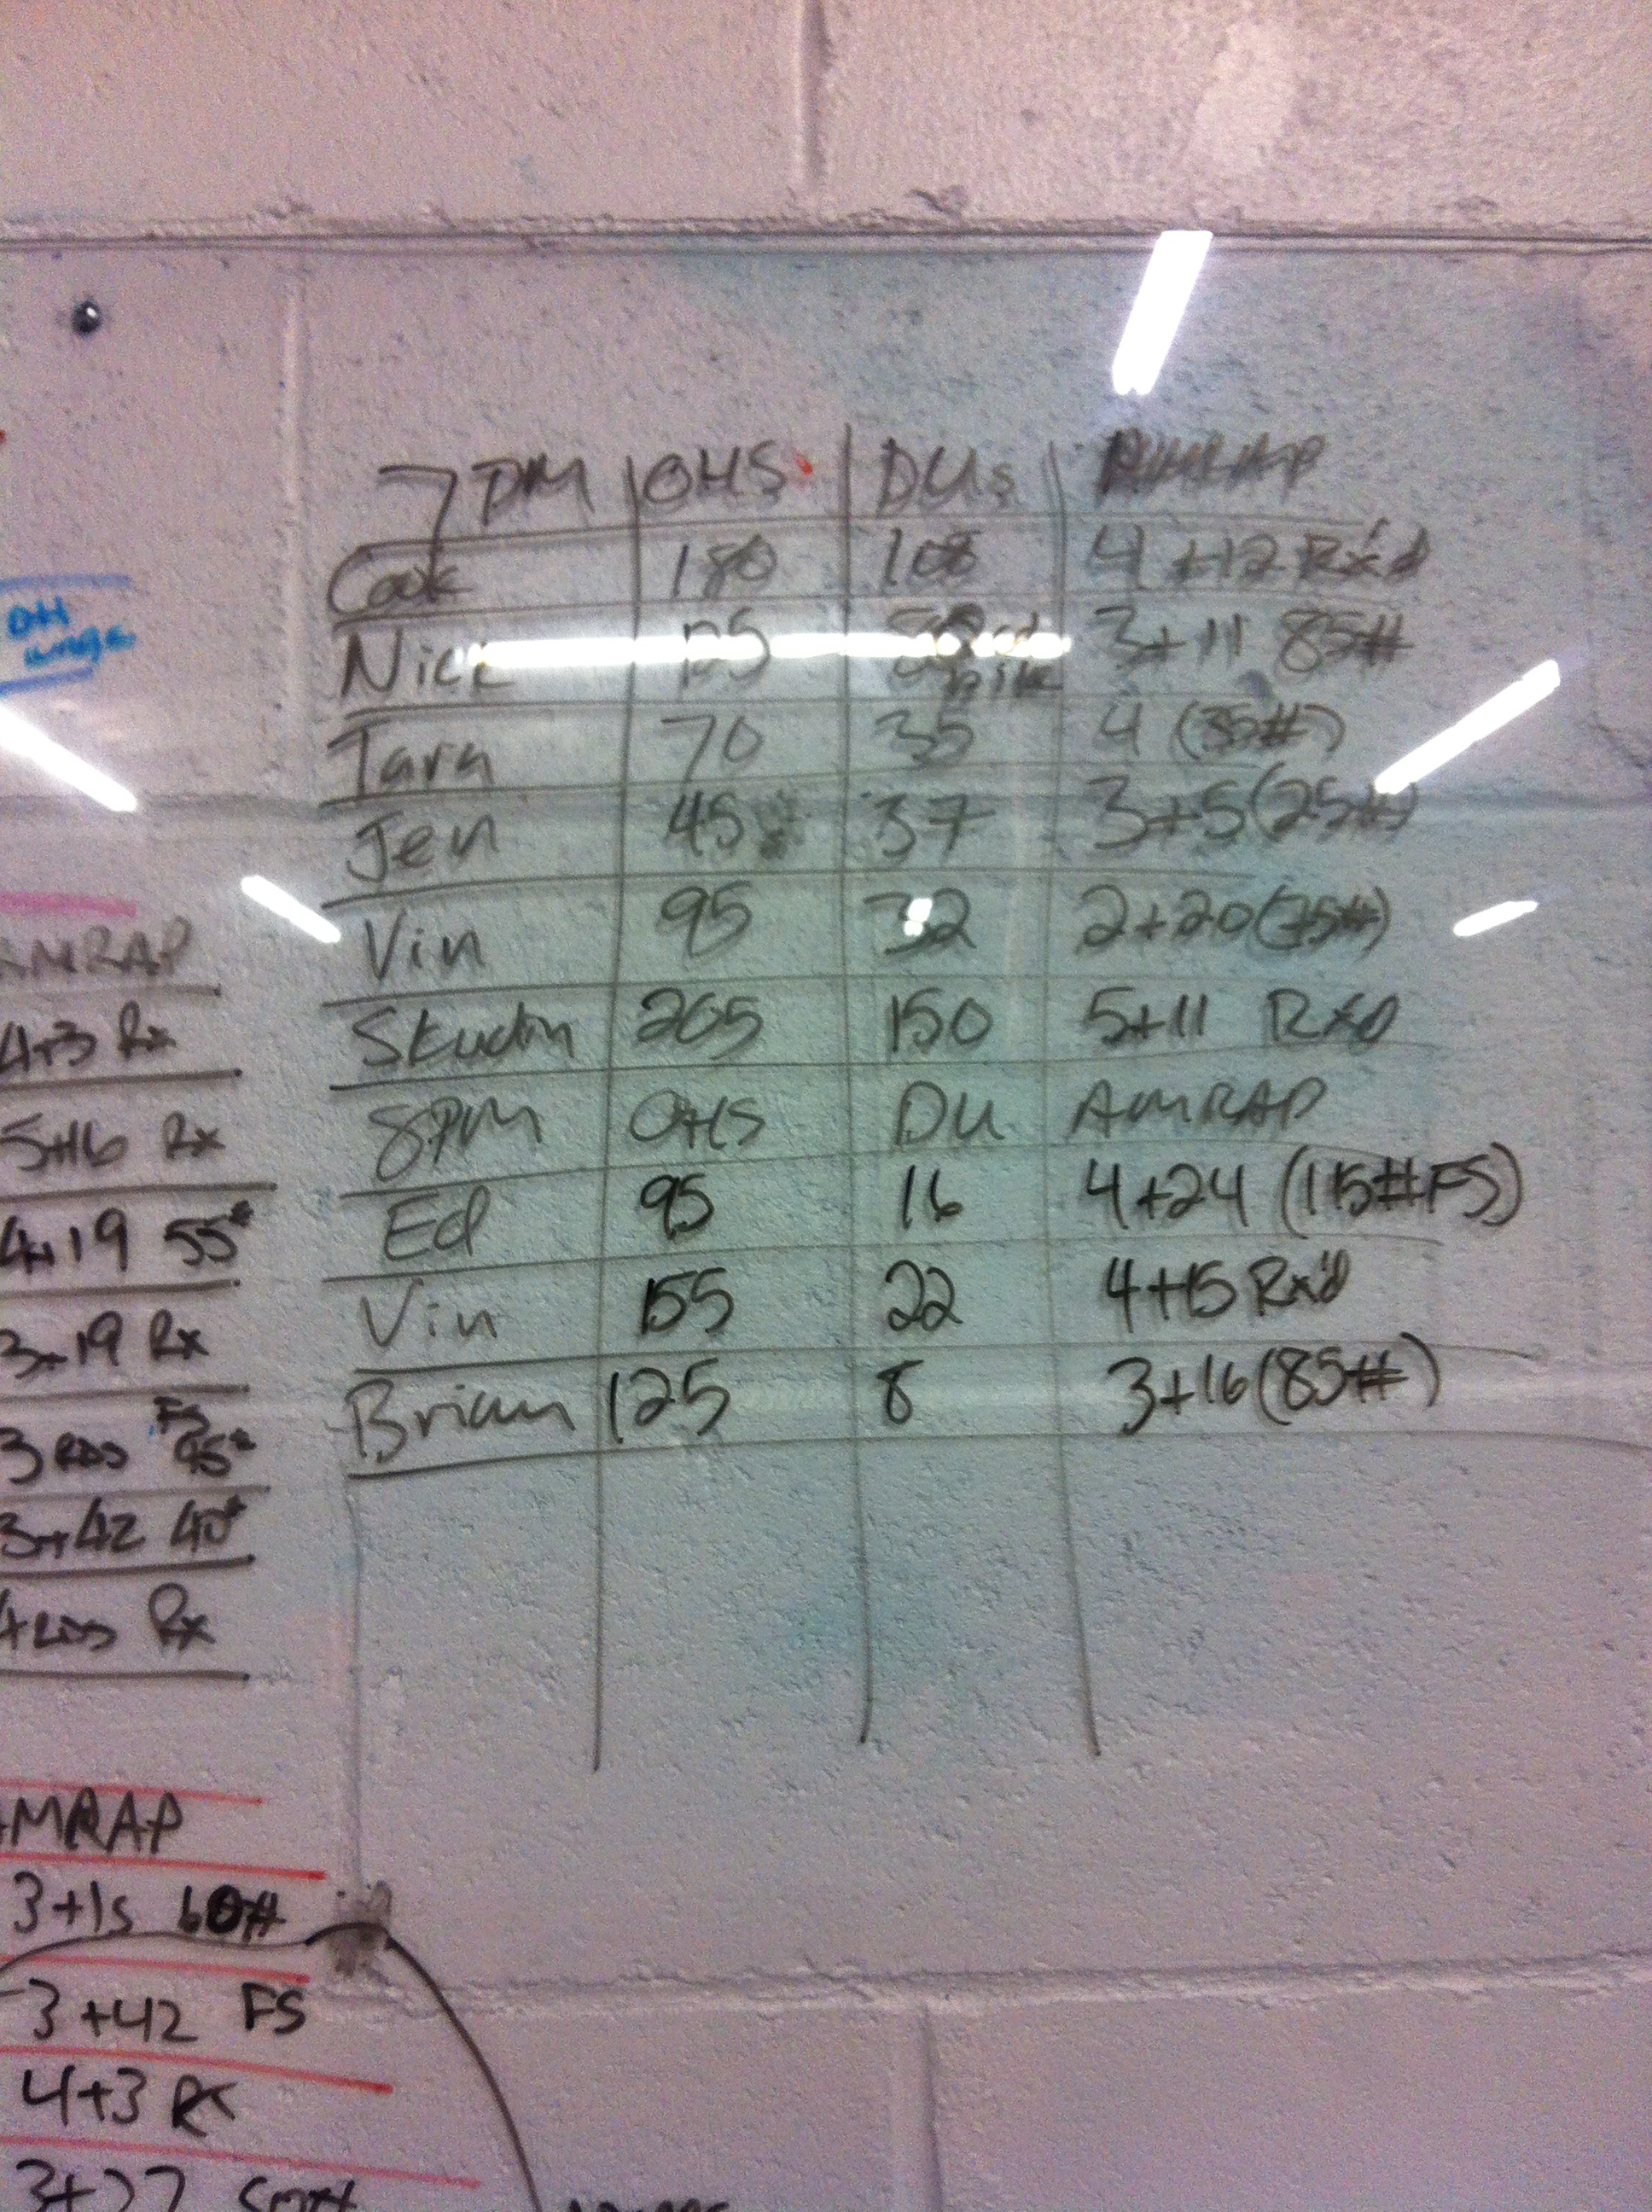 7PM OHS DUs AMRAP
Cook 180 108 4+12 Rx'd
Nick 125 3+11 85#
Tara 70 35 4 (35#)
Jen 45 37 3+5 (25#)
Vin 95 32 2+20 (75#)
Skudin 205 150 5+11 Rxd
8PM OHS DU AMRAP
Ed 95 16 4+24 (115#FS)
Vin 155 22 4+15 Rx'd
Brian 125 8 3+16 (85#)
AMRAP
4+3 Rx
5+16 Rx
4+19 55#
3+19 Rx
3 RDS FS 95#
3+42 40#
4 RDS Rx
AMRAP
3+15 60#
3+42 FS
4+3 Rx
3+27